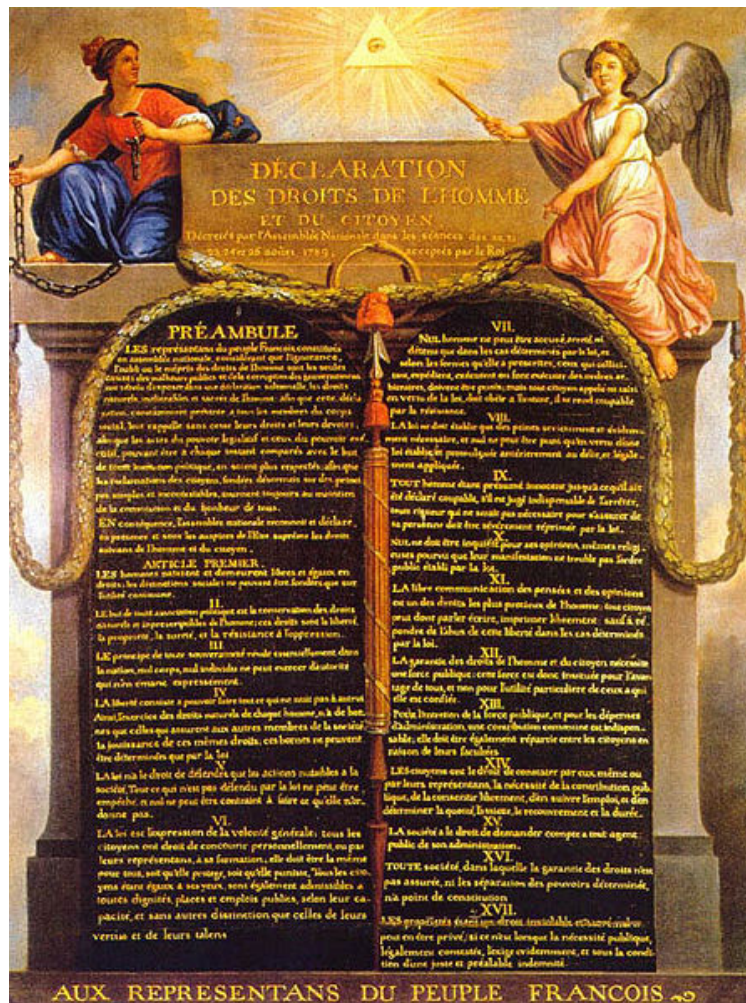 DÉCLARATION
DES DROITS DE L'HOMME
ET DU CITOYEN,
Décretés par l'Assemblée Nationale dans les séances des 20, 21
23, 24 et 26 août 1789, acceptés par le Roi
PRÉAMBULE
LES représentans du peuple François, constitués
en assemblée nationale, considérant que l'ignorance,
l'oubli ou le mépris des droits de l'homme sont les seules
causes des malheurs publics et de la corruption des gouvernemens
ont résolu d'exposer dans une déclaration solemnelle, les droits
naturels, inaliénables et sacrés de l'homme; afin que cette décla-
ration, constamment présente a tous les membres du corps
social, leur rappelle sans cesse leurs droits et leurs devoirs
afin que les actes du pouvoir législatif et ceux du pouvoir exé-
cutif, pouvant être à chaque instant comparés avec le but
de toute institution politique, en soient plus respectés; afin que
les réclamations des citoyens, fondées désormais sur des princi-
pes simples et incontestables, tournent toujours au maintien
de la constitution et du bonheur de tous.
EN conséquence, l'assemblée nationale reconnoit et déclare,
en presence et sous les auspices de l'Etre suprême les droits
suivans de l'homme et du citoyen.
ARTICLE PREMIER.
LES hommes naissent et demeurent libres et égaux en
droits; les distinctions sociales ne peuvent être fondées que sur
l'utilité commune.
II.
LE but de toute association politique est la conservation des droits
naturels et imprescriptibles de l'homme; ces droits sont la liberté,
la propriété, la sureté, et la résistance à l'oppression.
III.
LE principe de toute souveraineté réside essentiellement dans
la nation, nul corps, nul individu ne peut exercer d'autorité
qui n'en émane expressément.
IV.
LA liberté consiste a pouvoir faire tout ce qui ne nuit pas à autrui
Ainsi, l'exercice des droits naturels de chaque homme, n'a de bor-
nes que celles qui assurent aux autres membres de la société
la jouissance de ces mêmes droits; ces bornes ne peuvent
être déterminées que par la loi
LA loi n'a le droit de défendre que les actions nuisibles a la
société. Tout ce qui n'est pas défendu par la loi ne peut être
empêché, et nul ne peut être contraint à faire ce qu'elle n'or-
donne pas.
VI.
LA loi est l'expression de la volonté générale; tous les
citoyens ont droit de concourir personnellement, ou par
leurs représentans, à sa formation; elle doit être la même
pour tous, soit qu'elle protege, soit qu'elle punisse. Tous les cito-
yens étant égaux à ses yeux, sont également admissibles a
toutes dignités, places et emplois publics, selon leur ca-
pacité, et sans autres distinction que celles de leurs
vertus et de leurs talens
VII.
NUL homme ne peut être accusé, arreté, ni
détenu que dans les cas déterminés par la loi, et
selon les formes qu'elle a prescrites, ceux qui sollici-
tent, expédient, exécutent ou font exécuter des ordres ar-
bitraires, doivent être punis; mais tout citoyen appelé ou saisi
en vertu de la loi, doit obéir a l'instant, il se rend coupable
par la résistance.
VIII.
LA loi ne doit établir que des peines strictement et évidem-
ment nécessaire, et nul ne peut être puni qu'en vertu d'une
loi établie et promulguée antérieurement au délit, et légale-
ment appliquée.
IX.
TOUT homme étant présumé innocent jusqu'à ce qu'il ait
été déclaré coupable, s'il est jugé indispensable de l'arrêter,
toute rigueur qui ne serait pas nécessaire pour s'assurer de
sa personne doit être sévèrement réprimée par la loi.
X.
NUL ne doit être inquiété pour ses opinions, mêmes religi-
euses pourvu que leur manifestation ne trouble pas l'ordre
public établi par la loi.
XI.
LA libre communication des pensées et des opinions
est un des droits les plus precieux de l'homme; tout citoyen
peut donc parler écrire, imprimer librement; sauf à ré-
pondre de l'abus de cette liberté dans les cas déterminés
par la loi.
XII.
LA garantie des droits de l'homme et du citoyen nécessite
une force publique; cette force est donc instituée pour l'avan-
tage de tous, et non pour l'utilité particuliere de ceux a qui
elle est confiée.
XIII.
Pour l'entretien de la force publique, et pour les dépenses
d'administration, une contribution commune est indispen-
sable; elle doit être également répartie entre les citoyens en
raison de leurs facultées
XIV.
LES citoyens ont le droit de constater par eux même ou
par leurs représentans, la nécessité de la contribution pub-
lique, de la consentir librement, d'en suivre l'emploi, et d'en
déterminer la quotité, l'assiette, le recouvrement et la durée.
XV.
LA société a le droit de demander compte a tout agent
public de son administration.
XVI.
TOUTE société, dans laquelle la garantie des droits n'est
pas assurée, ni les séparation des pouvoirs déterminée,
n'a point de constitution
XVII.
LES propriétés étant un droit inviolable et sacré, nul ne
peut en être privé, si ce n'est lorsque la nécessité publique,
légalement constatée, l'exige evidemment, et sous la condi-
tion d'une juste et préalable indemnité.
AUX REPRESENTANS DU PEUPLE FRANCOIS